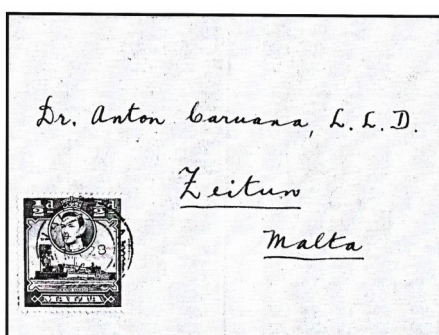 Dr. Anton Caruana, L. L. D.
Zeitun
Malta
½d ½d
MALTA